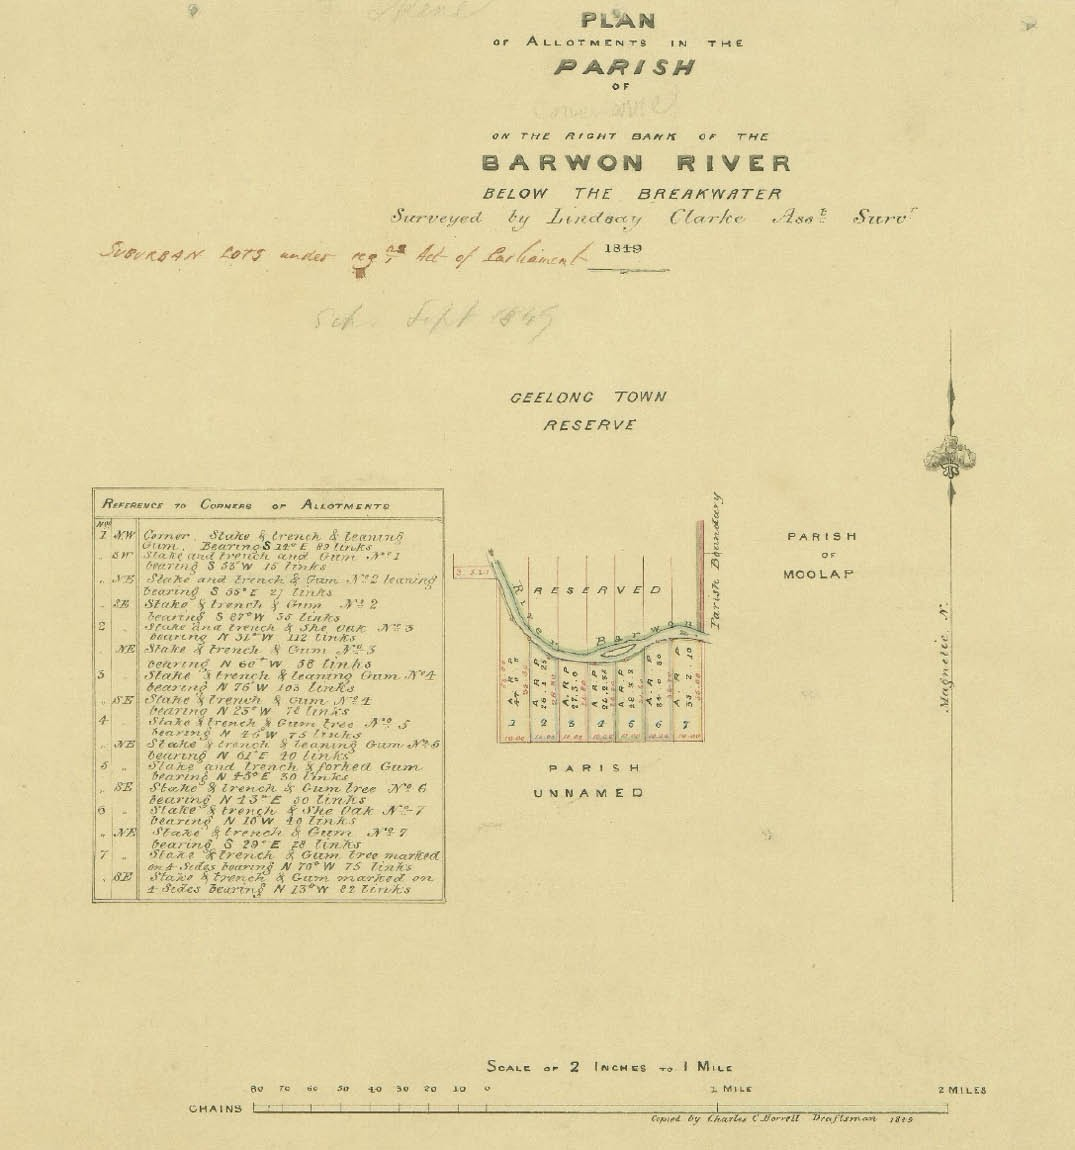 PLAN
OF ALLOTMENTS IN THE
PARISH
OF
ON THE RIGHT BANK OF THE
BARWON RIVER
BELOW THE BREAKWATER
Surveyed by Lindsay Clarke Asst Survr
1849
SUBURBAN LOTS under Act of Parliament
Sept 1849
GEELONG TOWN
RESERVE
REFERENCE TO CORNERS OF ALLOTMENTS
Nos
1 NW Corner. Stake & trench & leaning
Gum. Bearing S 14° E 89 links
„ SW Stake and trench and Gum No 1
bearing S 55° W 15 links
„ NE Stake and trench & Gum No 2 leaning
bearing S 55° E 27 links
„ SE Stake & trench & Gum No 2
bearing S 67° W 35 links
2 „ Stake and trench & She Oak No 3
bearing N 31° W 112 links
„ NE Stake & trench & Gum No 3
bearing N 60° W 58 links
3 „ Stake & trench & leaning Gum No 4
bearing N 76° W 103 links
„ SE Stake & trench & Gum No 4
bearing N 25° W 74 links
4 „ Stake & trench & Gum tree No 5
bearing N 46° W 75 links
„ NE Stake & trench & leaning Gum No 5
bearing N 61° E 40 links
5 „ Stake and trench & forked Gum
bearing N 43° E 30 links
„ SE Stake & trench & Gum tree No 6
bearing N 43° E 60 links
6 „ Stake & trench & She Oak No 7
bearing N 10° W 40 links
„ NE Stake & trench & Gum No 7
bearing S 29° E 28 links
7 „ Stake & trench & Gum tree marked
on 4 Sides bearing N 70° W 75 links
„ SE Stake & trench & Gum marked on
4 Sides bearing N 13° W 82 links
Parish Boundary
PARISH
OF
MOOLAP
RESERVED
River Barwon
A. R. P A. R. P A. R. P A. R. P A. R. P A. R. P A. R. P
1 2 3 4 5 6 7
10.00 10.00 10.00 10.00 10.00 10.00
PARISH
UNNAMED
Magnetic N.
SCALE OF 2 INCHES TO 1 MILE
80 70 60 50 40 30 20 10 0 1 MILE 2 MILES
CHAINS
Copied by Charles C Borrell Draftsman 1849